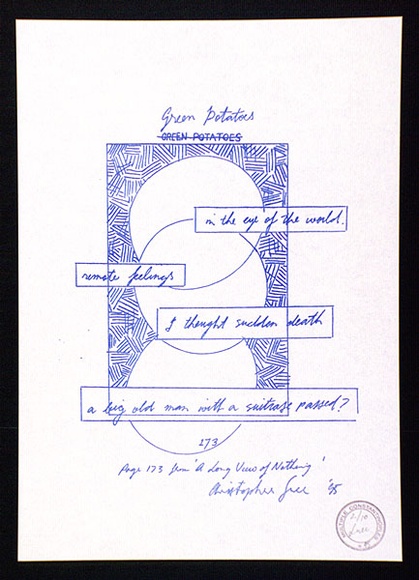 Green Potatoes
GREEN POTATOES
in the eye of the world.
remote feelings
I thought sudden death
a big old man with a suitcase passed?
173
Page 173 from 'A Long View of Nothing'
Christopher '95
2/10